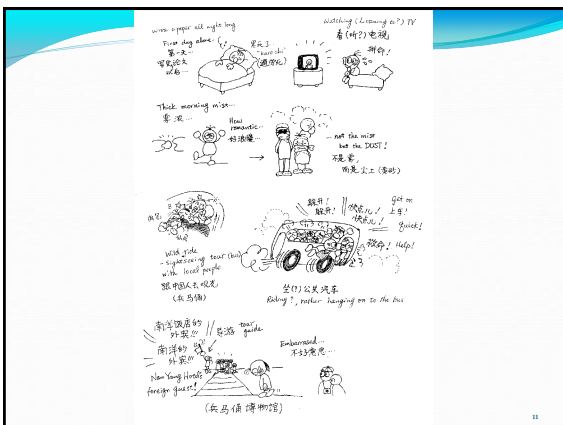 write a paper all night long
First day alone...
第一天...
写完论文
以后...
累死了
"karoshi"
(過労死)
Watching (Listening to?) TV
看(听?)电视
拼命!
Thick morning mist...
雾浓...
How
romantic...
好浪漫...
... not the mist
but the DUST!
不是雾,
而是尘土(黄砂)
Wild ride
- sightseeing tour (bus)
with local people
跟中国人去观光
(兵马俑)
躲开!
躲开!
快点儿!
快点儿!
get on
上车!
quick!
救命! Help!
坐(?)公共汽车
Riding?, rather hanging on to the bus
南洋饭店的
外宾!!!
南洋的
外宾!!!
导游 tour
guide
Nan Yang Hotel's
foreign guest!
Embarrassed...
不好意思...
(兵马俑博物馆)
11